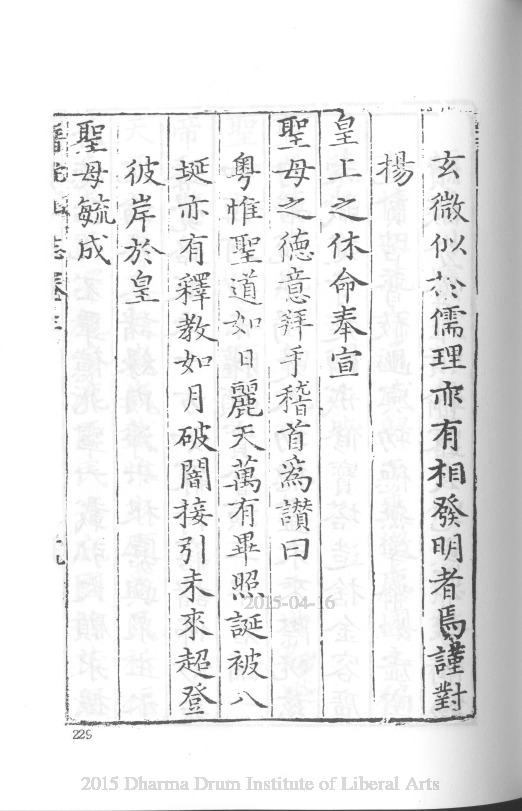 玄微似於儒理亦有相發明者焉謹對
揚
皇上之休命奉宣
聖母之德意拜手稽首為讚曰
粵惟聖道如日麗天萬有畢照誕被八
埏亦有釋教如月破闇接引未來超登
彼岸於皇
聖母毓成
志卷三
225
2015-04-16
2015 Dharma Drum Institute of Liberal Arts